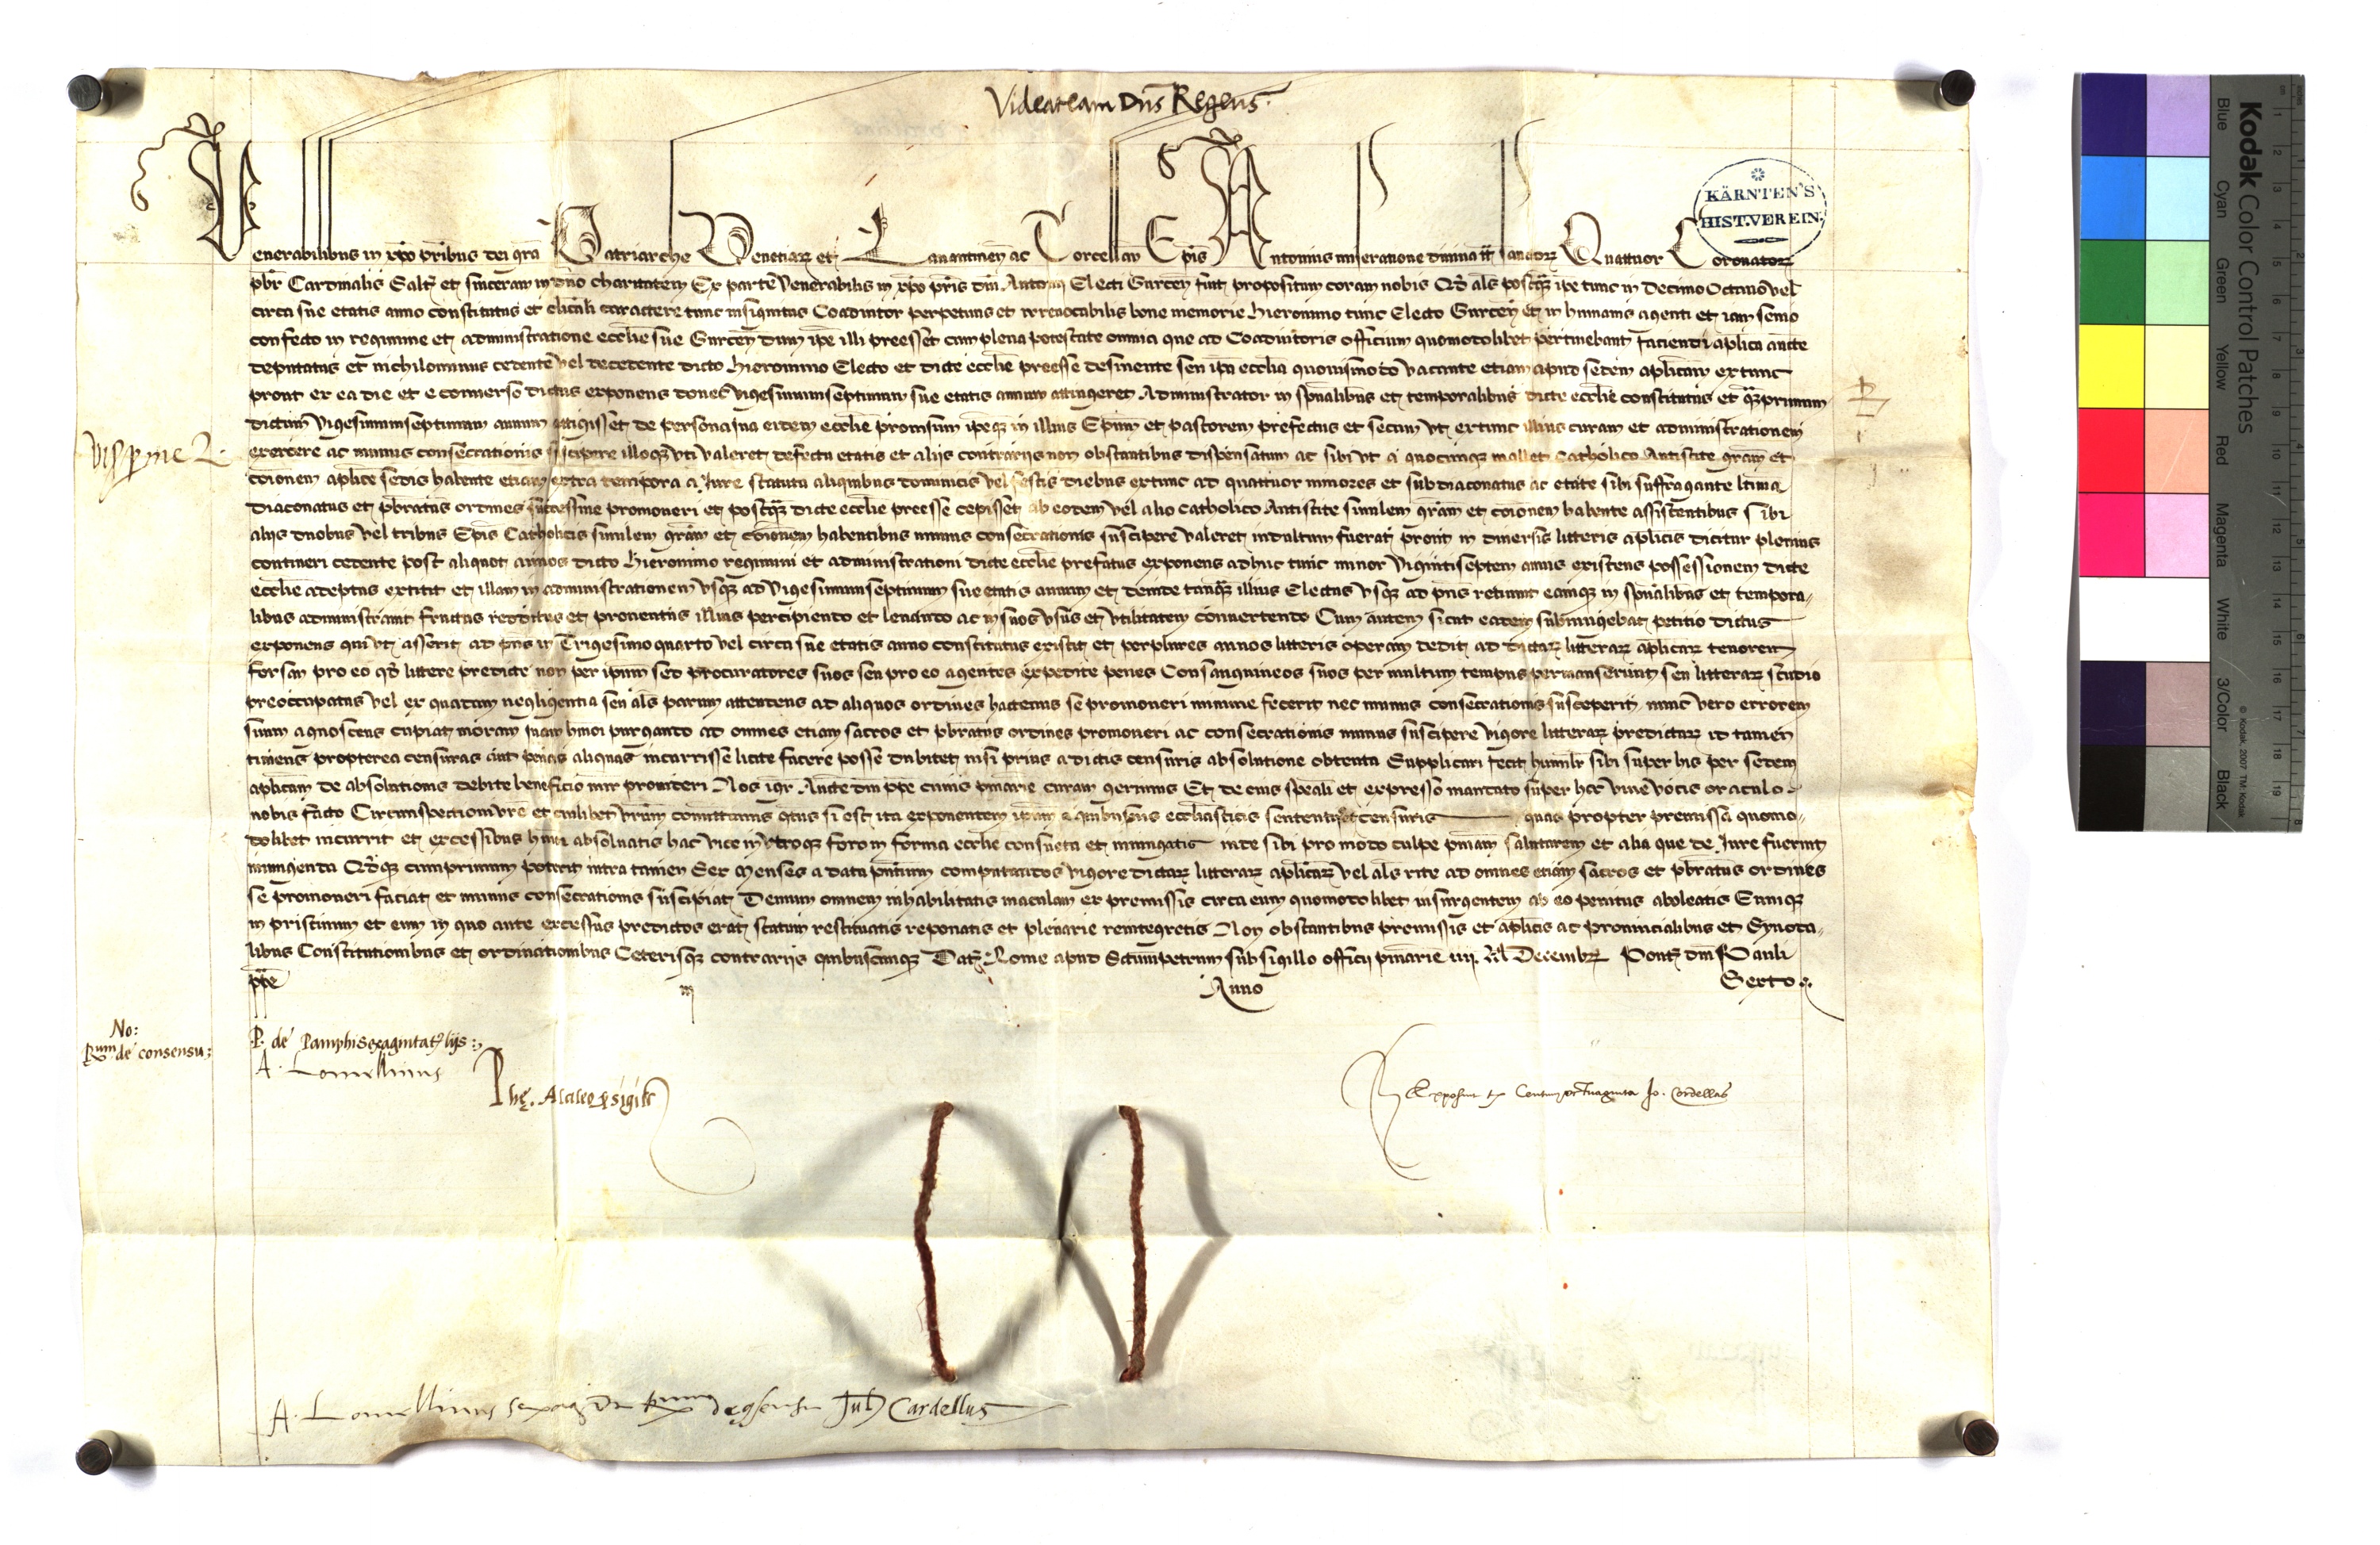 Videat eam Dns Regens
KÄRNTEN'S
HIST. VEREIN.
Venerabilibus in xpo pribus dei gra Patriarche Venetiar et Lauantinen ac Torcellan Epis Antonius miseratione diuina tt sanctor Quattuor Coronator
pbr Cardinalis Saltm et sinceram in dno charitatem Ex parte Venerabilis in xpo pris dni Antonij Electi Gurcen fuit propositum coram nobis Qd als postqz ipe tunc in Decimo Octauo vel
circa sue etatis anno constitutus et clicali caractere tunc insignitus Coadiutor perpetuus et irreuocabilis bone memorie Hieronimo tunc Electo Gurcen et in humanis agenti et iam senio
confecto in regimine et administratione ecclie sue Gurcen dum ipe illi preesset cum plena potestate omnia que ad Coadiutoris officium quomodolibet pertinebant faciendi aplica aucte
deputatus et nichilominus cedente vel decedente dicto Hieronimo Electo et dicte ecclie preesse desinente seu ipa ecclia quouismodo vacante etiam apud sedem aplicam extunc
prout ex ea die et e conuerso dictus exponens donec vigesimumseptimum sue etatis annum attingeret Administrator in spualibus et temporalibus dicte ecclie constitutus et qzprimum
dictum vigesimumseptimum annum attigisset de persona sua eidem ecclie prouisum ipeqz in illius Epum et pastorem prefectus et secum vt extunc illius curam et administrationem
exercere ac munus consecrationis suscipere illoqz vti valeret defectu etatis et alijs contrarijs non obstantibus dispensatum ac sibi vt a quocunqz mallet Catholico Antistite gram et
coionem aplice sedis habente etiam extra tempora a Jure statuta aliquibus dominicis vel festis diebus extunc ad quattuor minores et subdiaconatus ac etate sibi suffragante ltima
diaconatus et pbratus ordines successiue promoueri et postqz dicte ecclie preesse cepisset ab eodem vel alio catholico Antistite similem gram et coionem habente assistentibus sibi
alijs duobus vel tribus Epis Catholicis similem gram et coionem habentibus munus consecrationis suscipere valeret indultum fuerat prout in diuersis litteris aplicis dicitur plenius
contineri cedente post aliquot annos dicto Hieronimo regimini et administrationi dicte ecclie prefatus exponens adhuc tunc minor vigintiseptem annis existens possessionem dicte
ecclie adeptus extitit et illam in administrationem vsqz ad vigesimumseptimum sue etatis annum et deinde tanqz illius Electus vsqz ad pns retinuit eamqz in spualibus et tempora-
libus administrauit fructus redditus et prouentus illius percipiendo et leuando ac in suos vsus et vtilitatem conuertendo Cum autem sicut eadem subiungebat petitio dictus
exponens qui vt asserit ad pns in Trigesimoquarto vel circa sue etatis anno constitutus existit et perplures annos litteris operam dedit ad dictar litterar aplicar tenorem
forsan pro eo qd littere predicte non per ipum sed procuratores suos seu pro eo agentes expedite penes Consanguineos suos per multum tempus permanserunt seu litterar studio
preoccupatus vel ex quadam negligentia seu als parum attendens ad aliquos ordines hactenus se promoueri minime fecerit nec munus consecrationis susceperit nunc vero errorem
suum agnoscens cupiat moram suam hmoi purgando ad omnes etiam sacros et pbratus ordines promoueri ac consecrationis munus suscipere vigore litterar predictar id tamen
timens propterea censuras aut penas aliquas incurrisse licite facere posse dubitet nisi prius a dictis censuris absolutione obtenta Supplicari fecit humilr sibi super his per sedem
aplicam de absolutionis debite beneficio mir prouideri Nos igr Aucte dni ppe cuius pniarie curam gerimus Et de eius speali et expresso mandato super hoc viue vocis oraculo
nobis facto Circumspectioni vre et cuilibet vrum comittimus qtus si est ita exponentem ipum a quibusuis ecclesiasticis sententijs et censuris quas propter premissa quomo-
dolibet incurrit et excessibus hmoi absoluatis hac vice in vtroqz foro in forma ecclie consueta et iniungatis inde sibi pro modo culpe pniam salutarem et alia que de Jure fuerint
iniungenda Qdqz cumprimum poterit intra tamen Sex Menses a data pntium computandos vigore dictar litterar aplicar vel als rite ad omnes etiam sacros et pbratus ordines
se promoueri faciat et munus consecrationis suscipiat Demum omnem inhabilitatis maculam ex premissis circa eum quomodolibet insurgentem ab eo penitus aboleatis Eumqz
in pristinum et eum in quo ante excessus predictos erat statum restituatis reponatis et plenarie reintegretis Non obstantibus premissis et aplicis ac prouincialibus et Synoda-
libus Constitutionibus et ordinationibus Ceterisqz contrarijs quibuscunqz Dat Rome apud Sctumpetrum sub sigillo officij pniarie iiij kl Decembr Pont dni Pauli
ppe iij Anno Sexto
No:
Rum de consensu;
P. de Pamphi
A. Lomellinus
Jo. Cardellus
A. Lomellinus Jul Cardellus